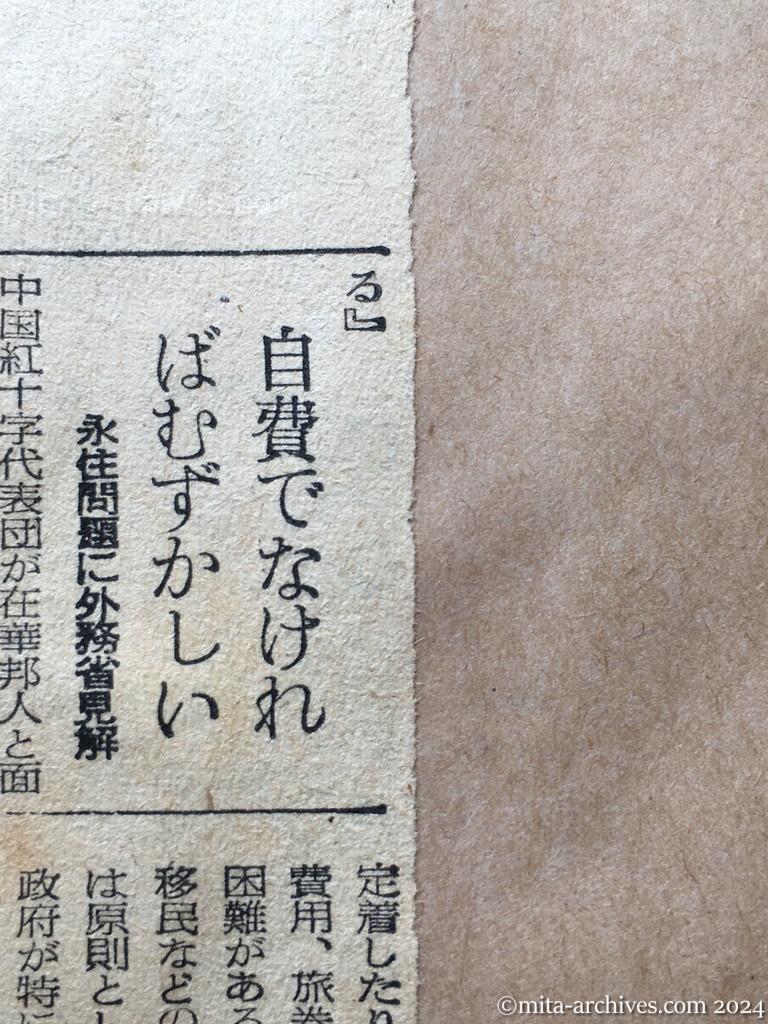 る』
自費でなけれ
ばむずかしい
永住問題に外務省見解
中国紅十字代表団が在華邦人と面
定着したり
費用、旅券
困難がある
移民などの
は原則とし
政府が特に
©mita-archives.com 2024